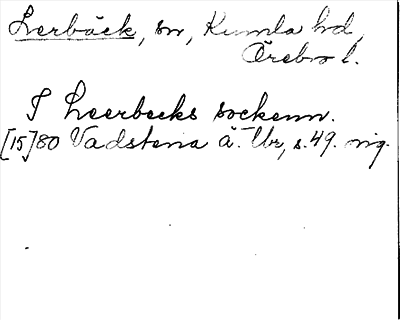 Lerbäck, sn, Kumla hd,
Örebro l.
I Leerbecks sockenn.
[15]80 Vadstena ä. Ur, s. 49. orig.